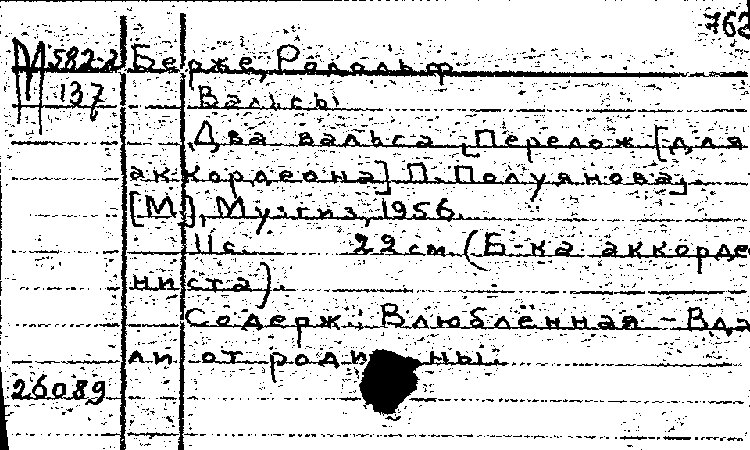 762
М 582-2 Берже, Родольф
137 Вальсы
Два вальса [Перелож [для
аккордеона] П. Полуянова].
[М], Музгиз, 1956.
11 с. 22 см (Б-ка аккорде
ниста).
Содерж.: Влюблённая - Вда
ли от родины.
26089